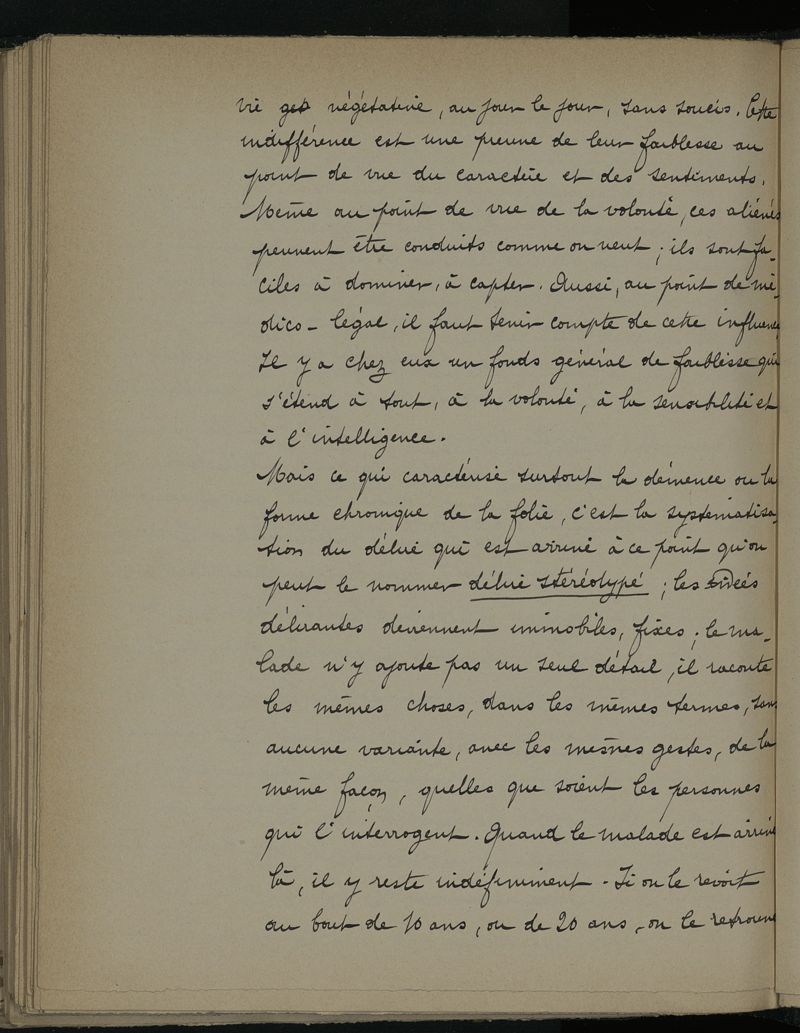 vie végétative, au jour le jour, sans soucis. Cette
indifférence est une preuve de leur faiblesse au
point de vue du caractère et des sentiments.
Même au point de vue de la volonté, ces aliénés
peuvent être conduits comme on veut ; ils sont fa-
ciles à dominer, à capter. Aussi, au point de mé-
dico-légal, il faut tenir compte de cette influence
Il y a chez eux un fonds général de faiblesse qui
s'étend à tout, à la volonté, à la sensibilité et
à l'intelligence.
Mais ce qui caractérise surtout la démence ou la
forme chronique de la folie, c'est la systématisa-
tion du délire qui est arrivé à ce point qu'on
peut le nommer délire stéréotypé ; les idées
délirantes deviennent immobiles, fixes ; le ma-
lade n'y ajoute pas un seul détail, il raconte
les mêmes choses, dans les mêmes termes, sans
aucune variante, avec les mêmes gestes, de la
même façon, quelles que soient les personnes
qui l'interrogent. Quand le malade est arrivé
là, il y reste indéfiniment. Si on le revoit
au bout de 10 ans, ou de 20 ans, on le retrouve